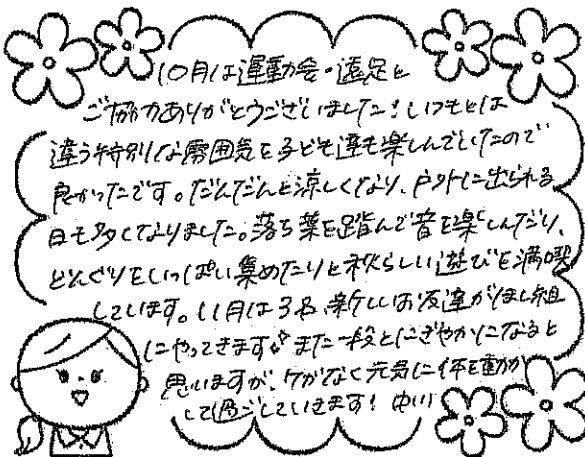 10月は運動会・遠足と
ご協力ありがとうございました！いつもとは
違う特別な雰囲気を子ども達も楽しんでいたので
良かったです。だんだんと涼しくなり、戸外に出られる
日も多くなりました。落ち葉を踏んで音を楽しんだり、
どんぐりをいっぱい集めたりと秋らしい遊びを満喫
しています。11月は3名、新しいお友達がほし組
にやってきます♪また一段とにぎやかになると
思いますが、ケガなく元気に体を動か
して過ごしていきます！